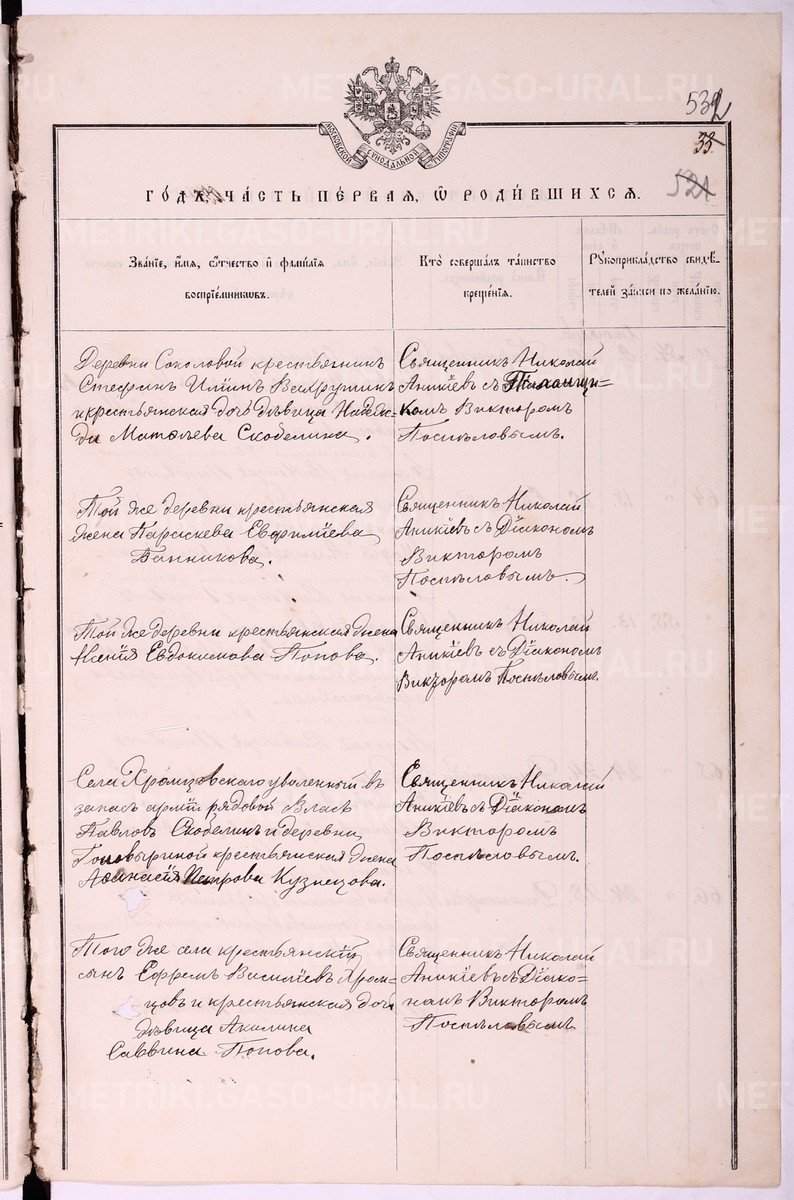 METRIKI.GASO-URAL.RU
532
33.
521
МОСКОВСКОЙ СѴНОДАЛЬНОЙ ТИПОГРАФІИ
ГО́ДЪ, ЧА́СТЬ ПЕ́РВАЯ, Ѡ҆ РОДИ́ВШИХСѦ.
Зва́ніе, и҆́мѧ, ѻ҆́тчество и҆ фами́лїѧ
воспрїе́мникѡвъ.
Кто̀ соверша́лъ та́инство
креще́нїѧ.
Рꙋкоприкла́дство свидѣ́-
телей за́писи по жела́нїю.
Деревни Соколовой крестьянинъ
Стефанъ Илiинъ Вахрушинъ
и крестьянская дочь дѣвица Надеж-
да Матѳеева Скобелина.
Священникъ Николай
Аникіевъ съ
комъ Викторомъ
Поспѣловымъ.
Той же деревни крестьянская
жена Параскева Евфиміева
Банникова.
Священникъ Николай
Аникіевъ съ Діакономъ
Викторомъ
Поспѣловымъ.
Той же деревни крестьянская жена
Ксенія Евдокимова Попова.
Священникъ Николай
Аникіевъ съ Діакономъ
Викторомъ Поспѣловымъ.
Села Хромцовскаго уволенный въ
запасъ арміи рядовой Власъ
Павловъ Скобелинъ и деревни
Головыриной крестьянская жена
Аѳанасія Петрова Кузнецова.
Священникъ Николай
Аникіевъ съ Діакономъ
Викторомъ
Поспѣловымъ.
Того же села крестьянскій
сынъ Ефремъ Василіевъ Хром-
цовъ и крестьянская дочь
дѣвица Акилина
Саввина Попова.
Священникъ Николай
Аникіевъ съ Діако-
номъ Викторомъ
Поспѣловымъ.